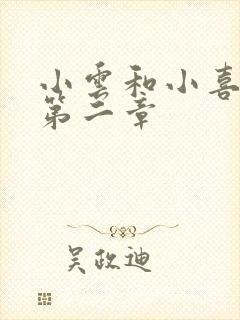 小雲和小喜
第二章
吴政迪